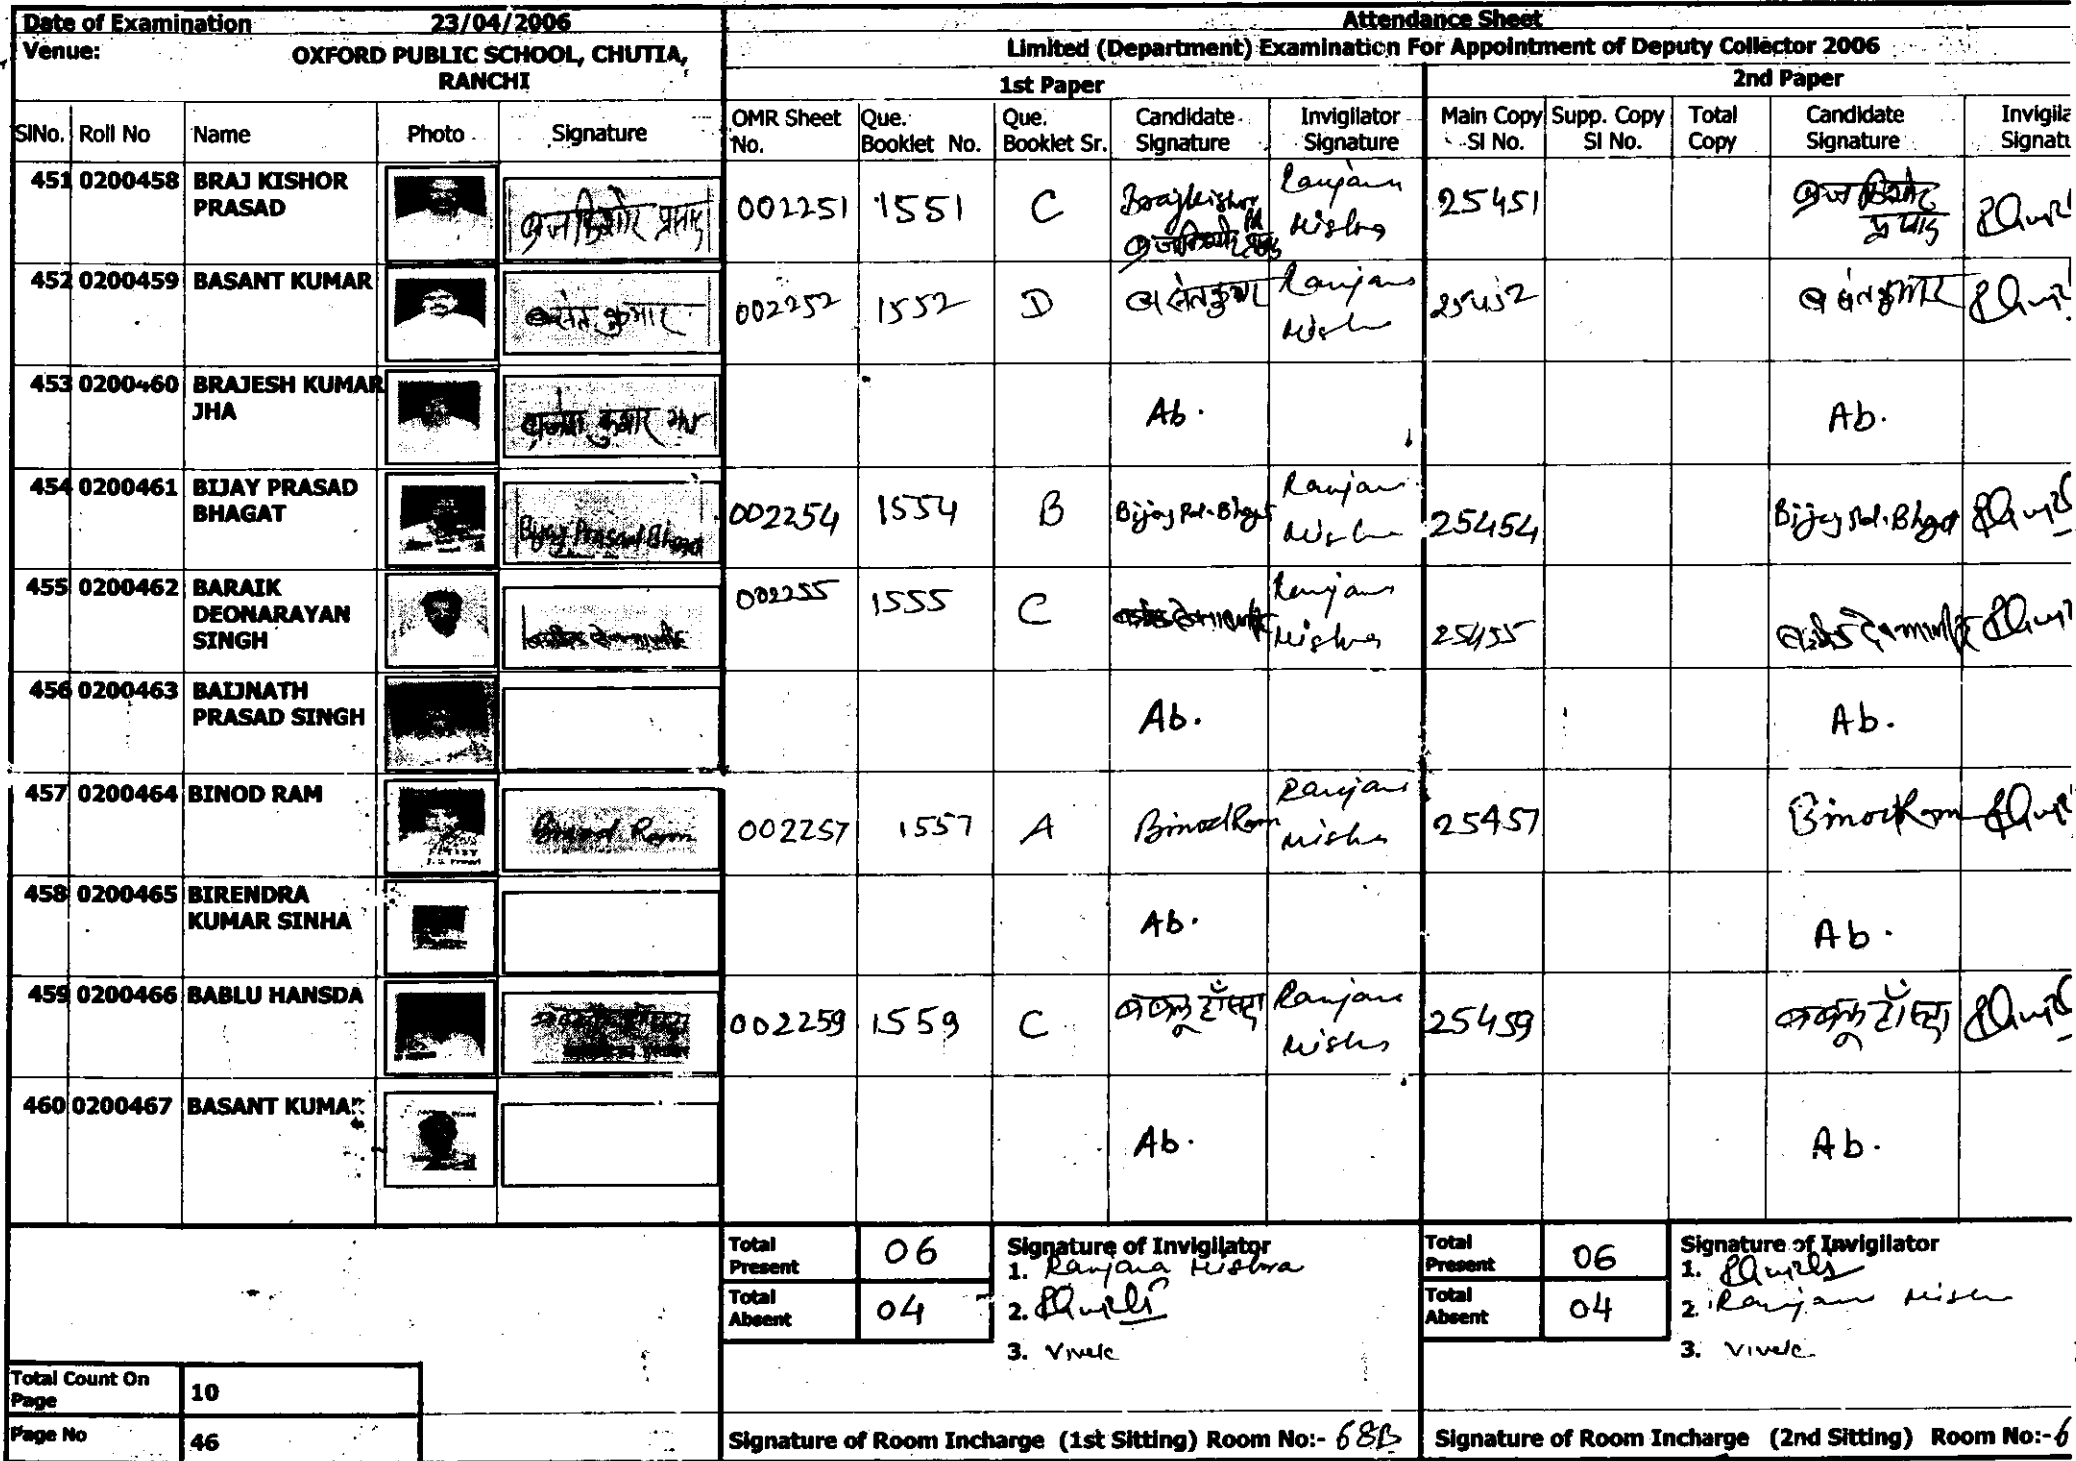 Date of Examination 23/04/2006 Attendance Sheet
Venue: OXFORD PUBLIC SCHOOL, CHUTIA, RANCHI
Limited (Department) Examination For Appointment of Deputy Collector 2006
1st Paper 2nd Paper
SlNo. Roll No Name Photo Signature OMR Sheet No. Que. Booklet No. Que. Booklet Sr. Candidate Signature Invigilator Signature Main Copy Sl No. Supp. Copy Sl No. Total Copy Candidate Signature Invigila Signatu
451 0200458 BRAJ KISHOR PRASAD ब्रजकिशोर प्रसाद 002251 1551 C Brajkishor ब्रजकिशोर प्रसाद Ranjana Mishra 25451 ब्रजकिशोर प्रसाद
452 0200459 BASANT KUMAR बसंत कुमार 002252 1552 D बसंत कुमार Ranjana Mishra 25452 बसंत कुमार
453 0200460 BRAJESH KUMAR JHA Ab. Ab.
454 0200461 BIJAY PRASAD BHAGAT Bijay Prasad Bhagat 002254 1554 B Bijay Pd. Bhagat Ranjana Mishra 25454 Bijay Pd. Bhagat
455 0200462 BARAIK DEONARAYAN SINGH 002255 1555 C Ranjana Mishra 25455
456 0200463 BAIJNATH PRASAD SINGH Ab. Ab.
457 0200464 BINOD RAM Binod Ram 002257 1557 A Binod Ram Ranjana Mishra 25457 Binod Ram
458 0200465 BIRENDRA KUMAR SINHA Ab. Ab.
459 0200466 BABLU HANSDA 002259 1559 C बबलू हाँसदा Ranjana Mishra 25459 बबलू हाँसदा
460 0200467 BASANT KUMAR Ab. Ab.
Total Present 06 Signature of Invigilator Total Present 06 Signature of Invigilator
1. Ranjana Mishra 1.
Total Absent 04 2. Total Absent 04 2. Ranjana Mishra
3. Vivek 3. Vivek
Total Count On Page 10
Page No 46 Signature of Room Incharge (1st Sitting) Room No:- 68B Signature of Room Incharge (2nd Sitting) Room No:- 6